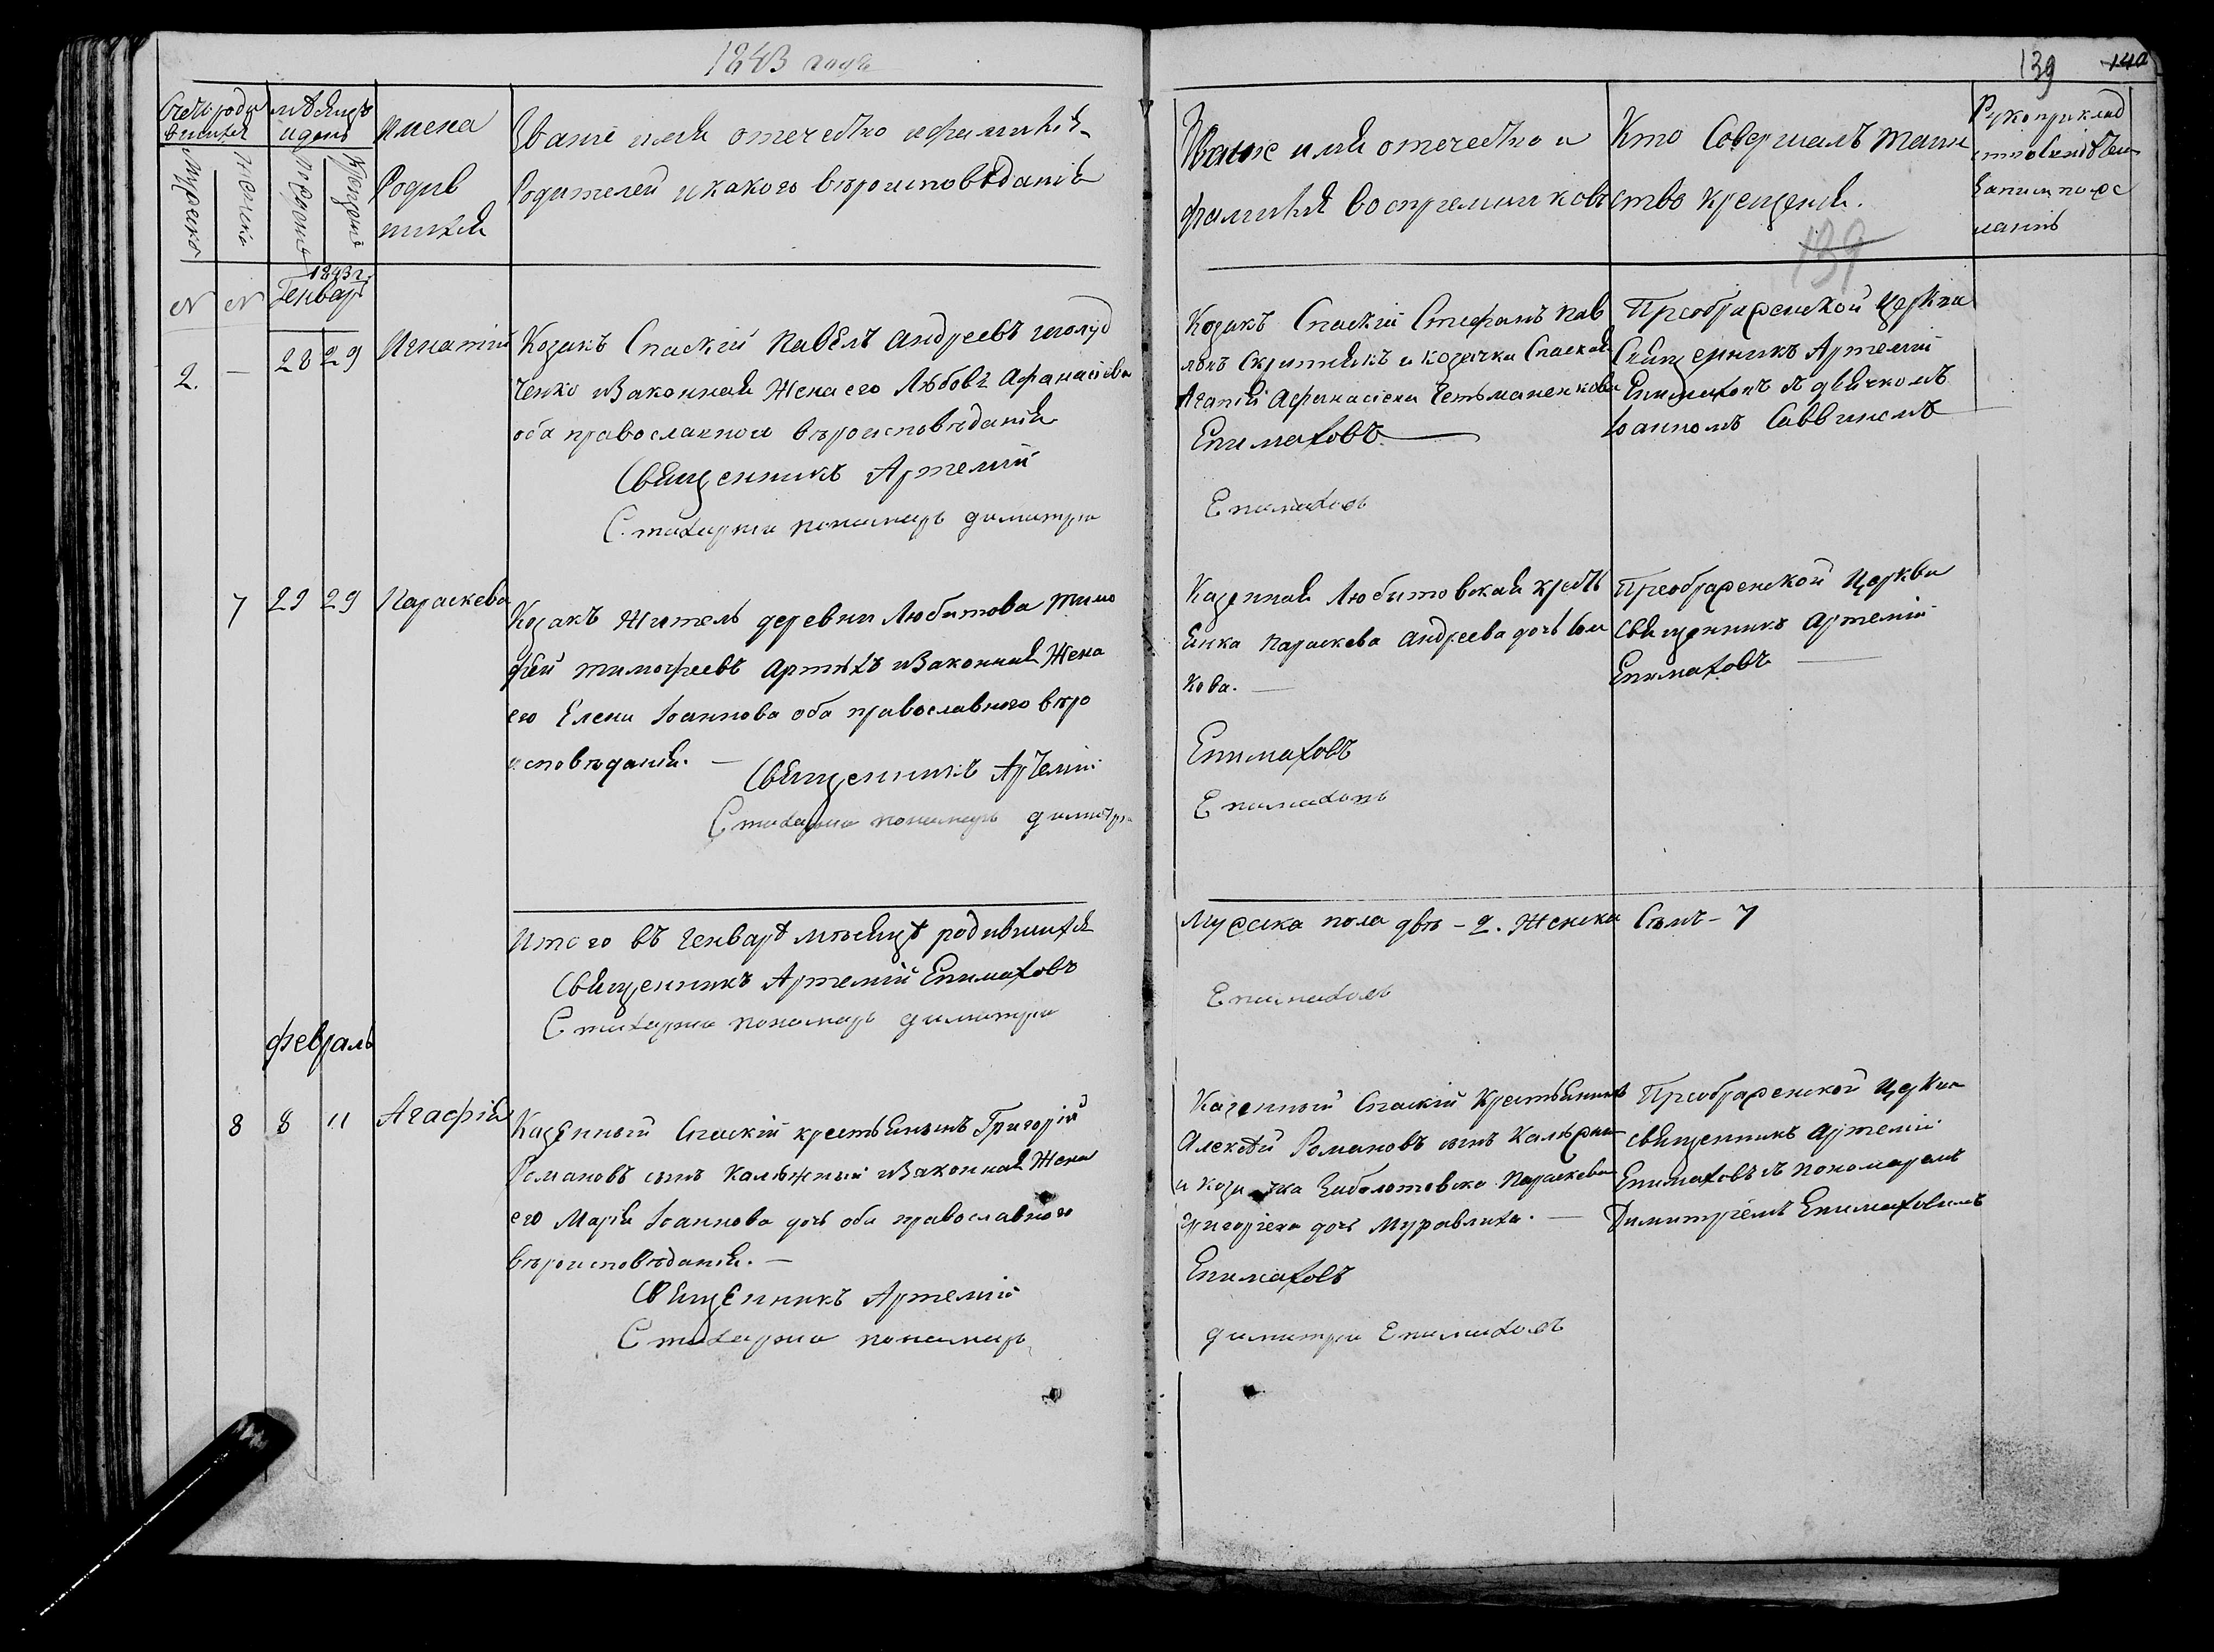 1843 годъ
139 140
Счетъ роди
вшихся
мѣсяцъ
и день
Имена
Родив
шихся
Званіе имя отечество и фамилія
Родителей и какого вѣроисповѣданія
Мужеска
Женска
Рожденія
Крещенія
Званіе имя отечество и
фамилія воспреемниковъ
Кто совершалъ таин
ство крещенія.
Рукоприклад
ство свидѣтел
записи по же
ланію
139
1843 г.
Генварь
№ № 
2. — 28 29 Игнатій
Козакъ Спаскій Павелъ Андреевъ
ченко и Законная Жена его Любовь Афанасіева
оба православного вѣроисповѣданія
Священникъ Артемій
Стихарни пономарь Димитри
Козакъ Спаскій Стефанъ Пав
ловъ и козачка Спаская
Агапія Афанасіева Гетьманенкова
Епимаховъ
Епимаховъ
Преображенской Церкви
Священникъ Артемій
Епимаховъ съ дьячкомъ
Іоанномъ Саввинемъ
7 29 29 Параскева
Козакъ житель деревни Любитова Тимо
фей Тимофеевъ Артюхъ и Законная Жена
его Елена Іоаннова оба православного вѣро
исповѣданія. —
Священникъ Артемій
Стихарни пономарь Димитри
Казенная Любитовская крестья
янка Параскева Андреева дочь
кова. —
Епимаховъ
Епимаховъ
Преображенской Церкви
священникъ Артемій
Епимаховъ —
Итого въ Генварѣ мѣсяцѣ родившихся
Священникъ Артемій Епимаховъ
Стихарни пономарь Димитри
Мужска пола два - 2. Женска Семь - 7
Епимаховъ
февраль
8 8 11 Агафія
Казенный Спаскій крестьянинъ Григорій
Романовъ сынъ Калюжный и Законная Жена
его Марія Іоаннова дочь оба православного
вѣроисповѣданія. —
Священникъ Артемій
Стихарни пономарь
Казенный Спаскій Крестьянинъ
Алексѣй Романовъ сынъ Калюжны
и козачка Заболотовска Параскева
Григоріева дочь Муравлиха. —
Епимаховъ
Димитри Епимаховъ
Преображенской Церкви
священникъ Артемій
Епимаховъ съ пономаремъ
Димитріемъ Епимаховимъ